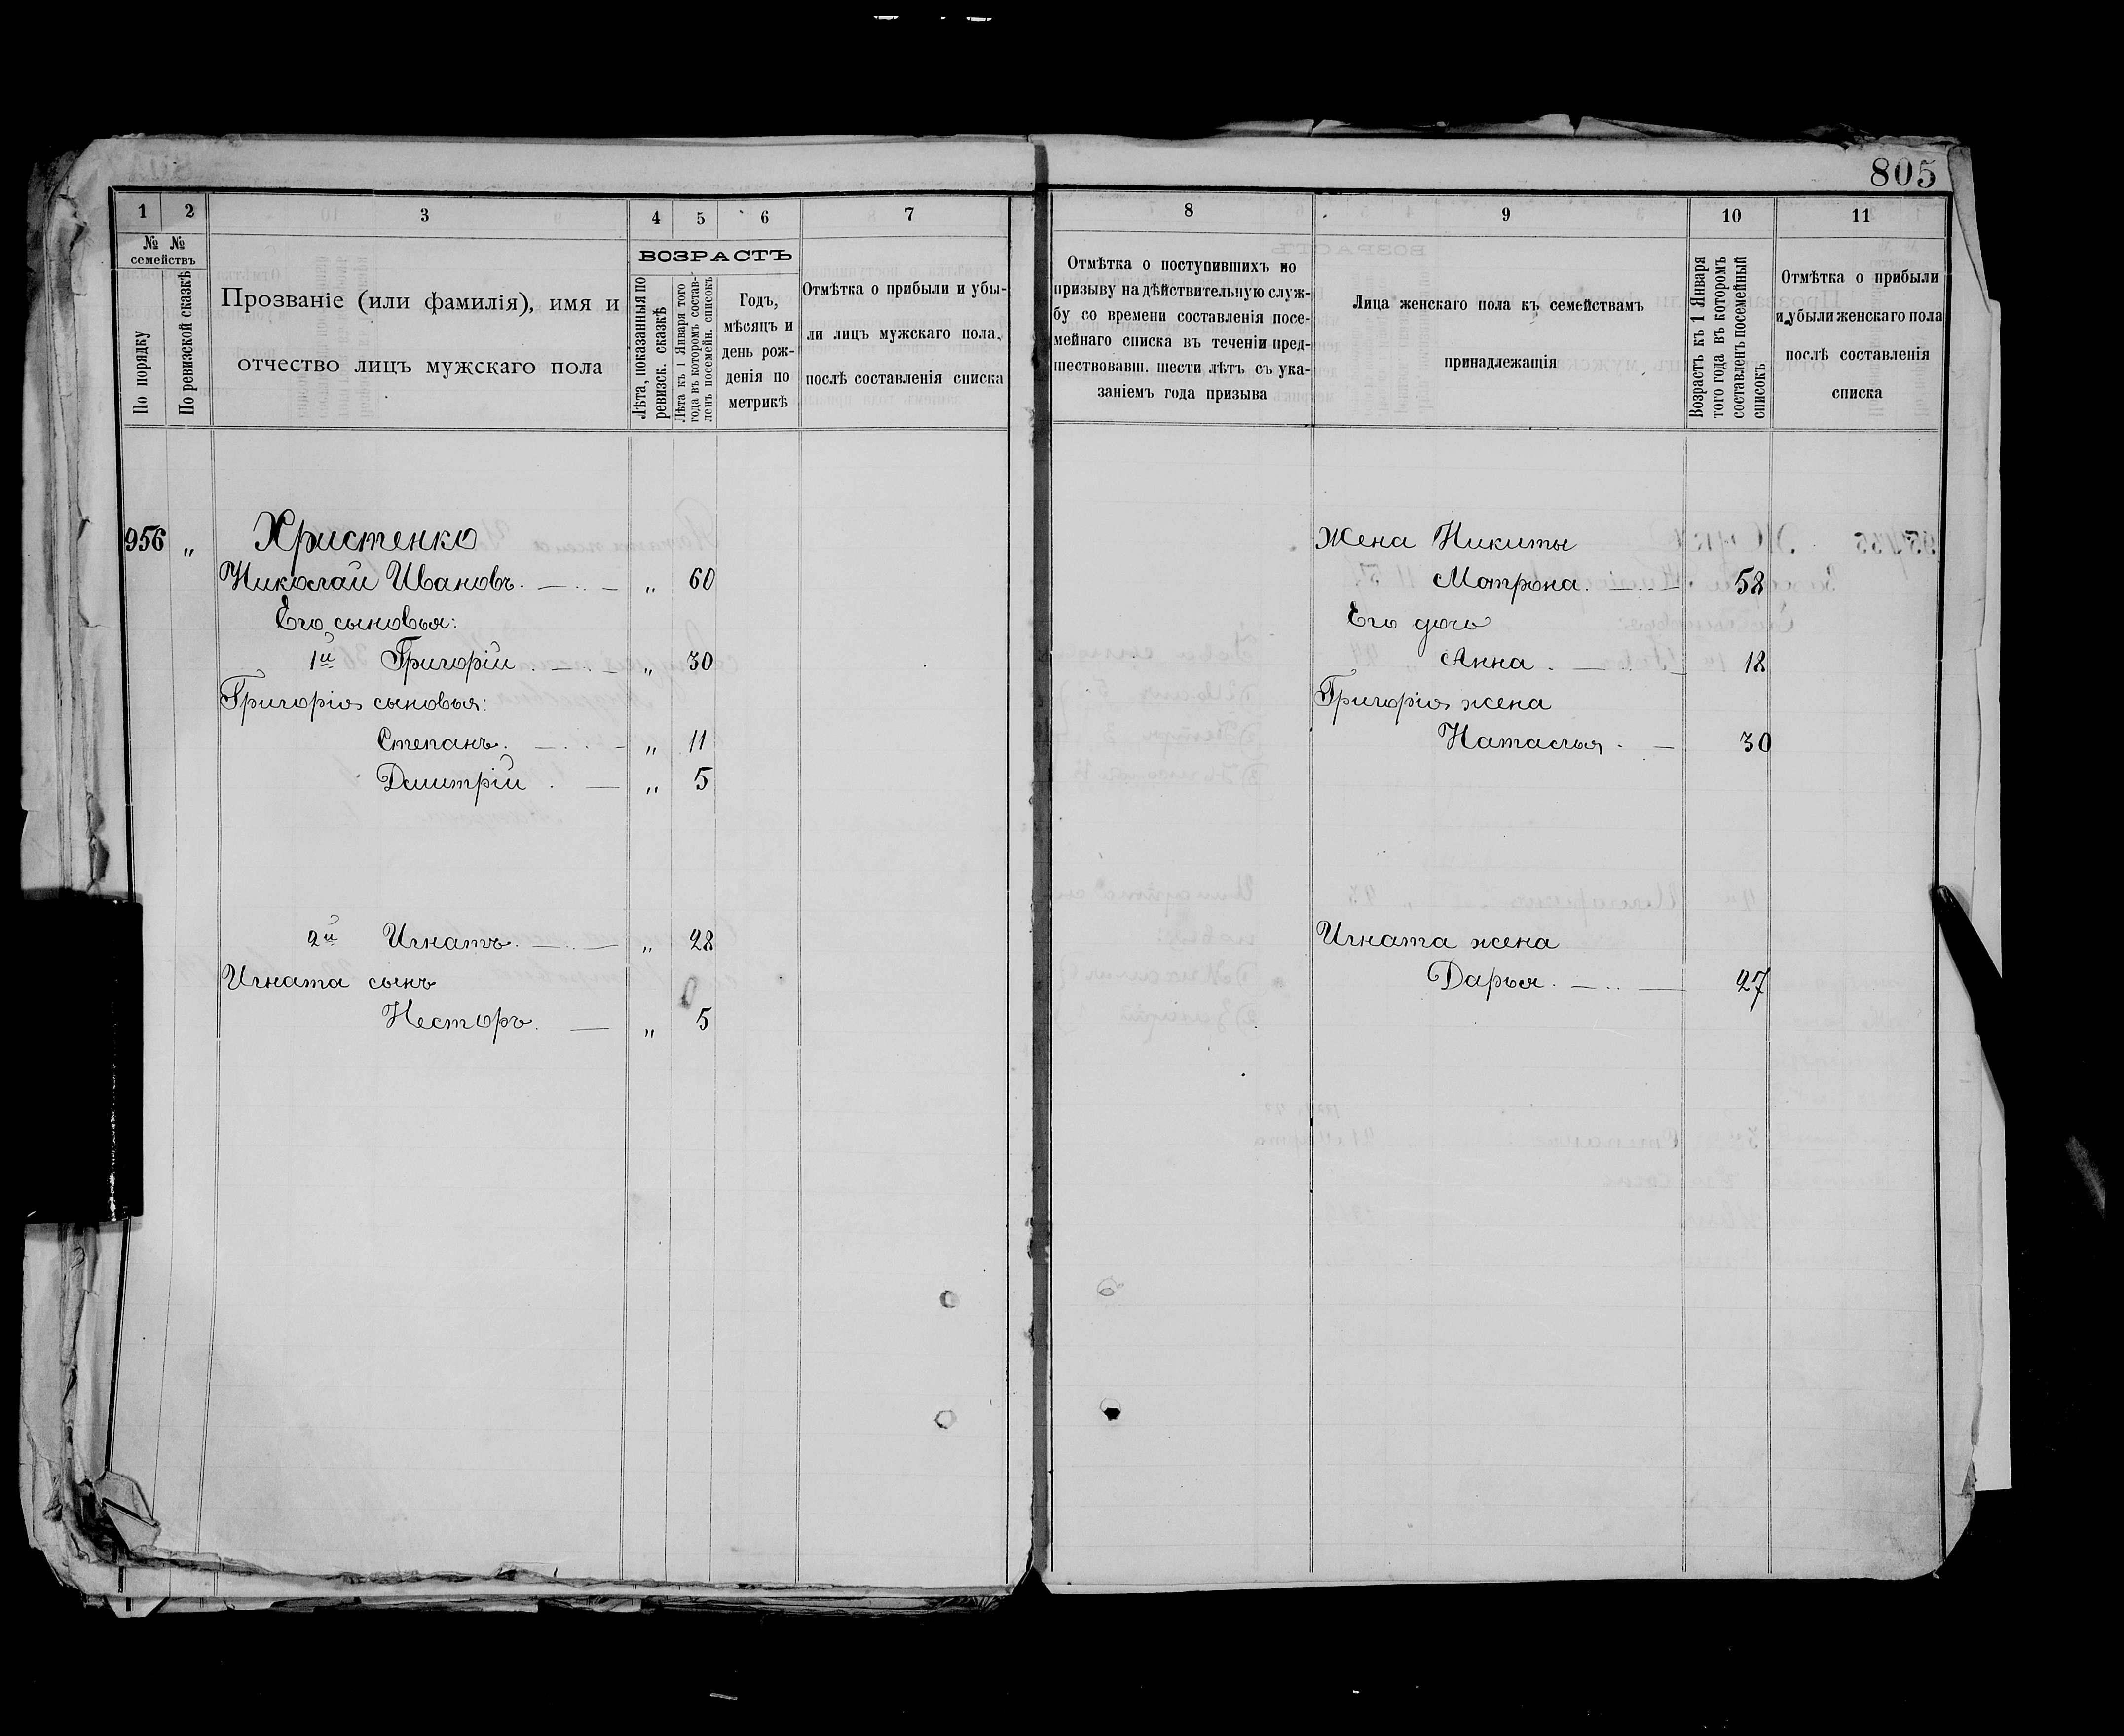 805
1 2 3 4 5 6 7
№ № семействъ
По порядку
По ревизской сказкѣ
Прозваніе (или фамилія), имя и
отчество лицъ мужскаго пола
ВОЗРАСТЪ
Лѣта, показанныя по
ревизск. сказкѣ
Лѣта къ 1 Января того
года въ которомъ состав-
ленъ посемейн. списокъ
Годъ,
мѣсяцъ и
день рож-
денія по
метрикѣ
Отмѣтка о прибыли и убы-
ли лицъ мужскаго пола,
послѣ составленія списка
956 „ Христенко
Николай Ивановъ. „ 60
Его сыновья:
1й Григорій „ 30
Григорія сыновья:
Степанъ. „ 11
Дмитрій „ 5
2й Игнатъ. „ 28
Игната сынъ
Несторъ. „ 5
8 9 10 11
Отмѣтка о поступившихъ по
призыву на дѣйствительную служ-
бу со времени составленія посе-
мейнаго списка въ теченіи пред-
шествовавш. шести лѣтъ съ ука-
заніемъ года призыва
Лица женскаго пола къ семействамъ
принадлежащія
Возрастъ къ 1 Января
того года въ которомъ
составленъ посемейный
списокъ
Отмѣтка о прибыли
и убыли женскаго пола
послѣ составленія
списка
Жена Никиты
Мотрона. 58
Его дочь
Анна. 18
Григорія жена
Наталья. 30
Игната жена
Дарья. 27